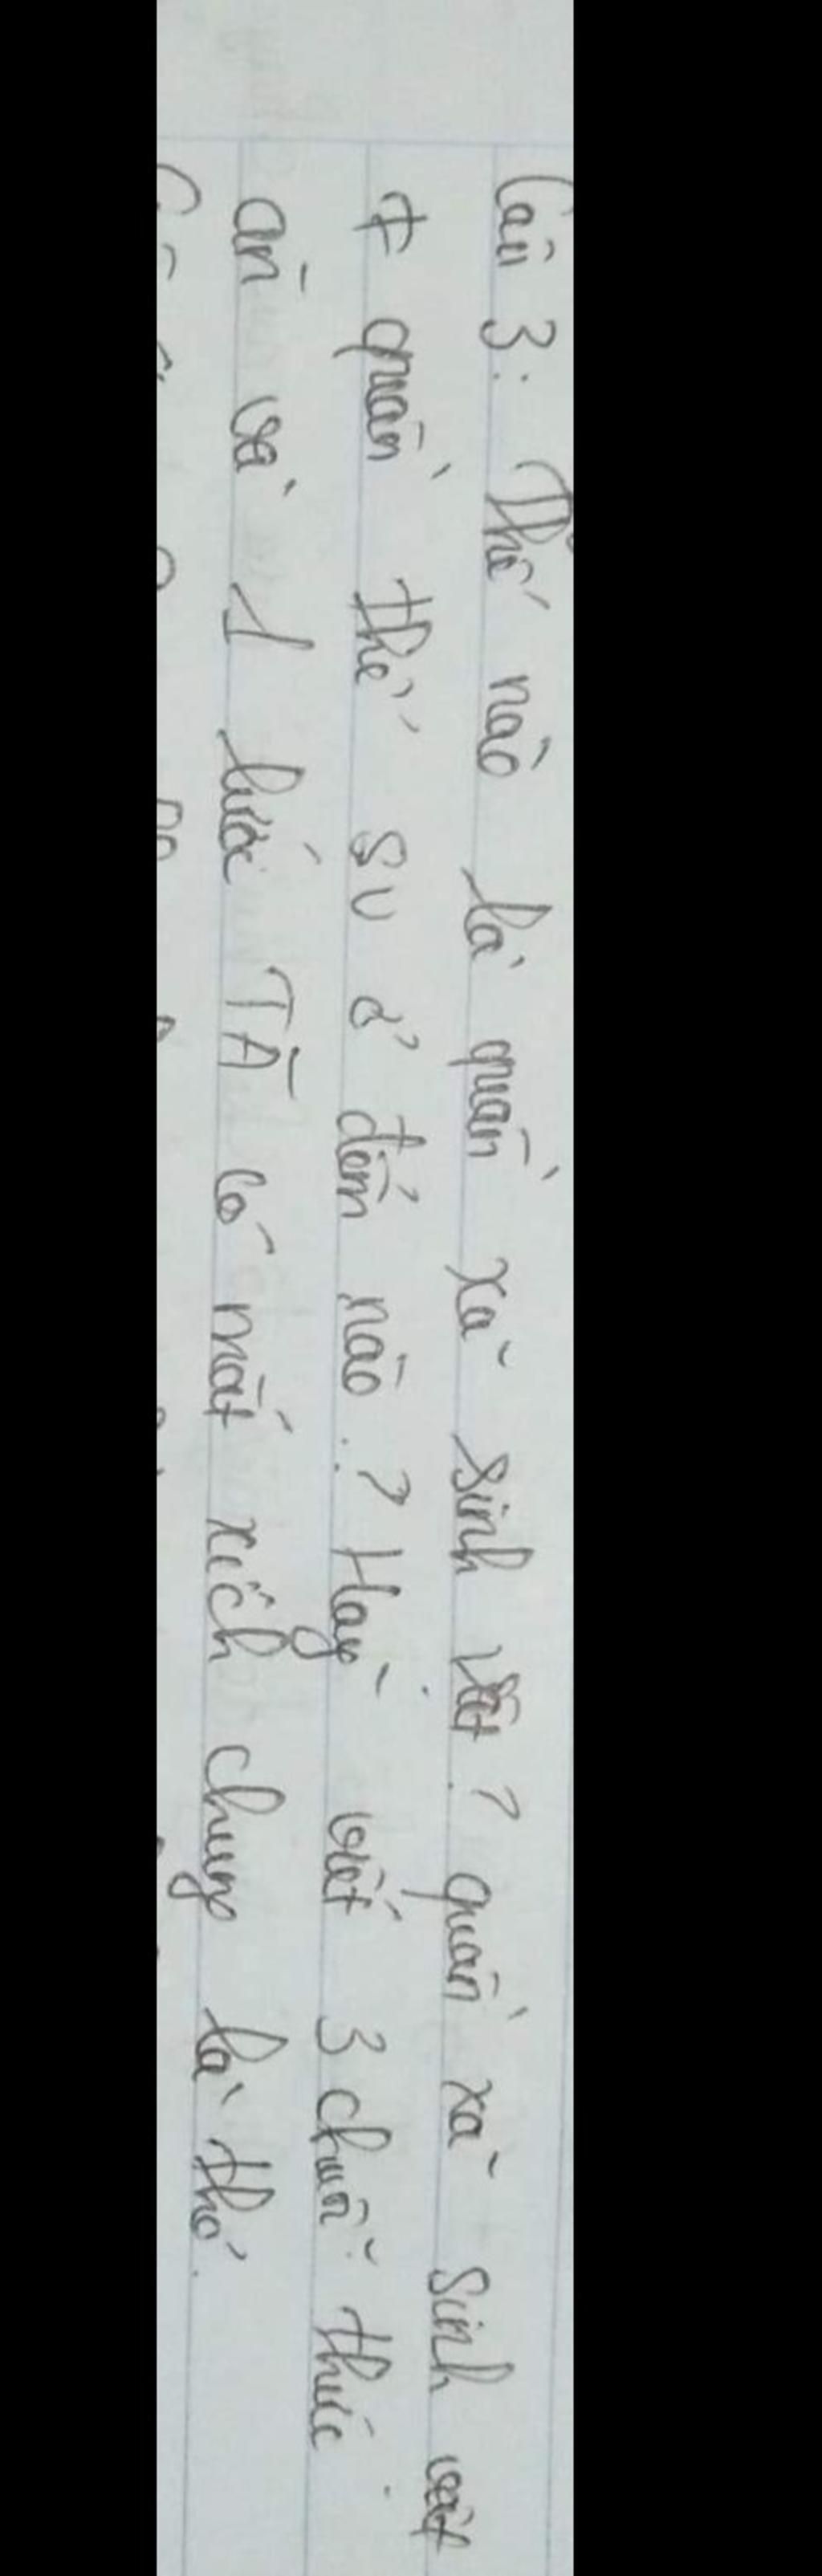 Câu 3: Thế nào là quần xã sinh vật? quần xã sinh vật
≠ quần thể SV ở điểm nào? Hãy viết 3 chuỗi thức
ăn và 1 lưới TĂ có mắt xích chung là thỏ.